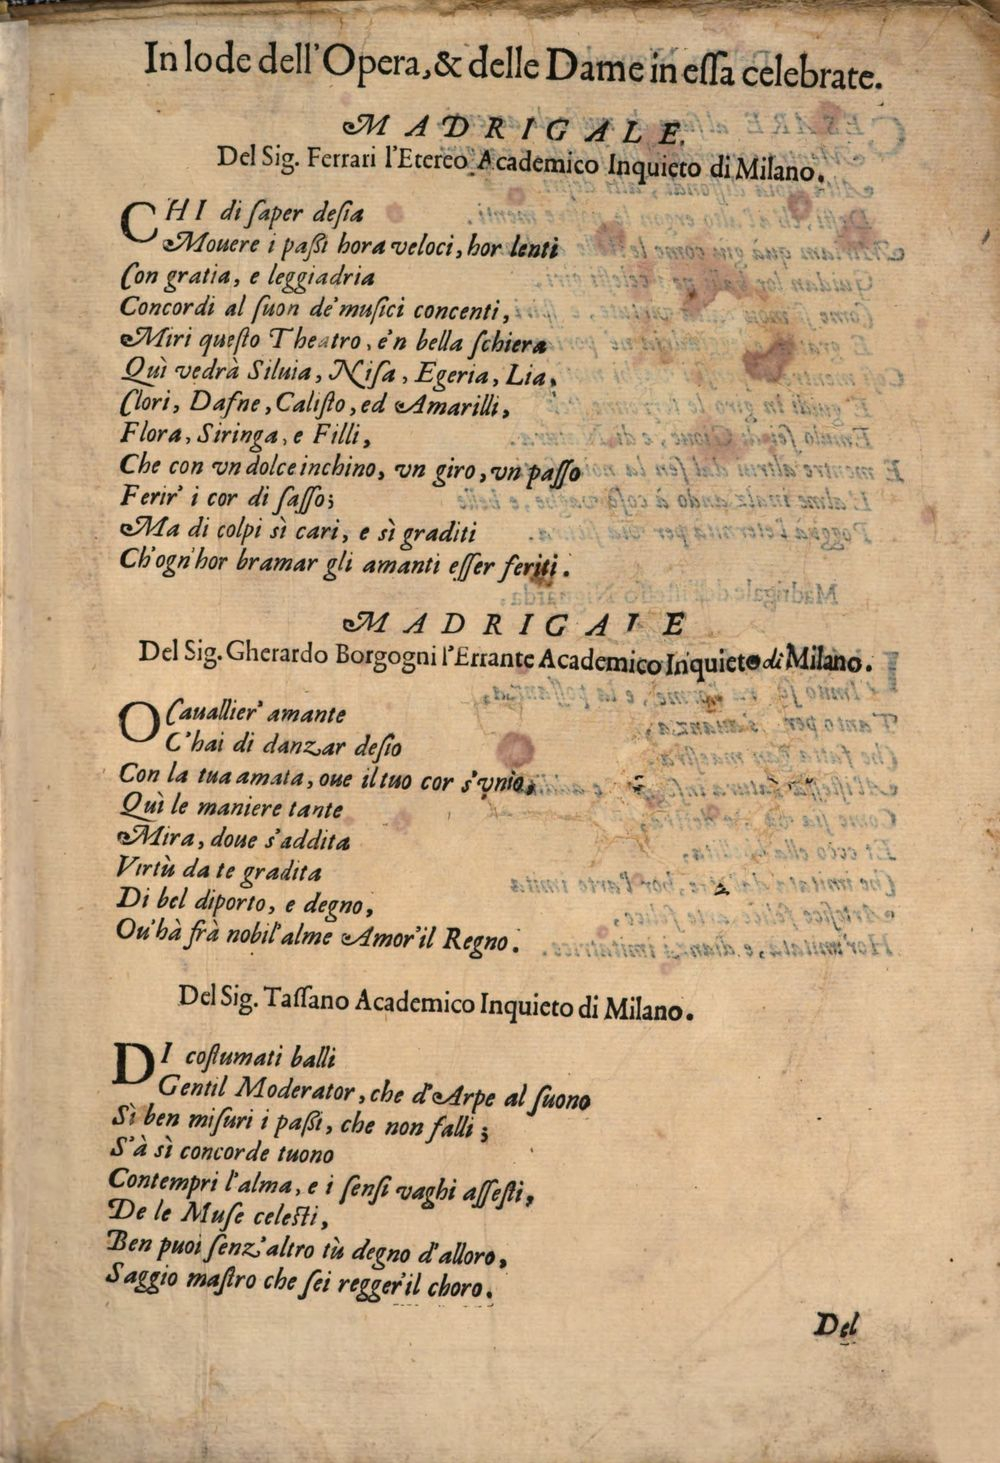 In lode dell'Opera, & delle Dame in eſſa celebrate.
MADRIGALE.
Del Sig. Ferrari l'Etereo Academico Inquieto di Milano.
CHI di ſaper deſia
Mouere i paßi hora veloci, hor lenti
Con gratia, e leggiadria
Concordi al ſuon de' muſici concenti,
Miri queſto Theatro, e'n bella ſchiera
Quì vedrà Siluia, Niſa, Egeria, Lia,
Clori, Dafne, Caliſto, ed Amarilli,
Flora, Siringa, e Filli,
Che con vn dolce inchino, vn giro, vn paſſo
Ferir' i cor di ſaſſo;
Ma di colpi sì cari, e sì graditi
Ch'ogn'hor bramar gli amanti eſſer feriti.
MADRIGALE
Del Sig. Gherardo Borgogni l'Errante Academico Inquieto di Milano.
O Cauallier' amante
C'hai di danzar deſio
Con la tua amata, oue il tuo cor s'vnìo,
Quì le maniere tante
Mira, doue s'addita
Virtù da te gradita
Di bel diporto, e degno,
Ou'hà frà nobil'alme Amor'il Regno.
Del Sig. Taſſano Academico Inquieto di Milano.
DI coſtumati balli
Gentil Moderator, che d'Arpe al ſuono
Sì ben miſuri i paßi, che non falli;
S'à sì concorde tuono
Contempri l'alma, e i ſenſi vaghi aſſeſti,
De le Muſe celeſti,
Ben puoi ſenz'altro tù degno d'alloro,
Saggio maſtro che ſei regger'il choro.
Del